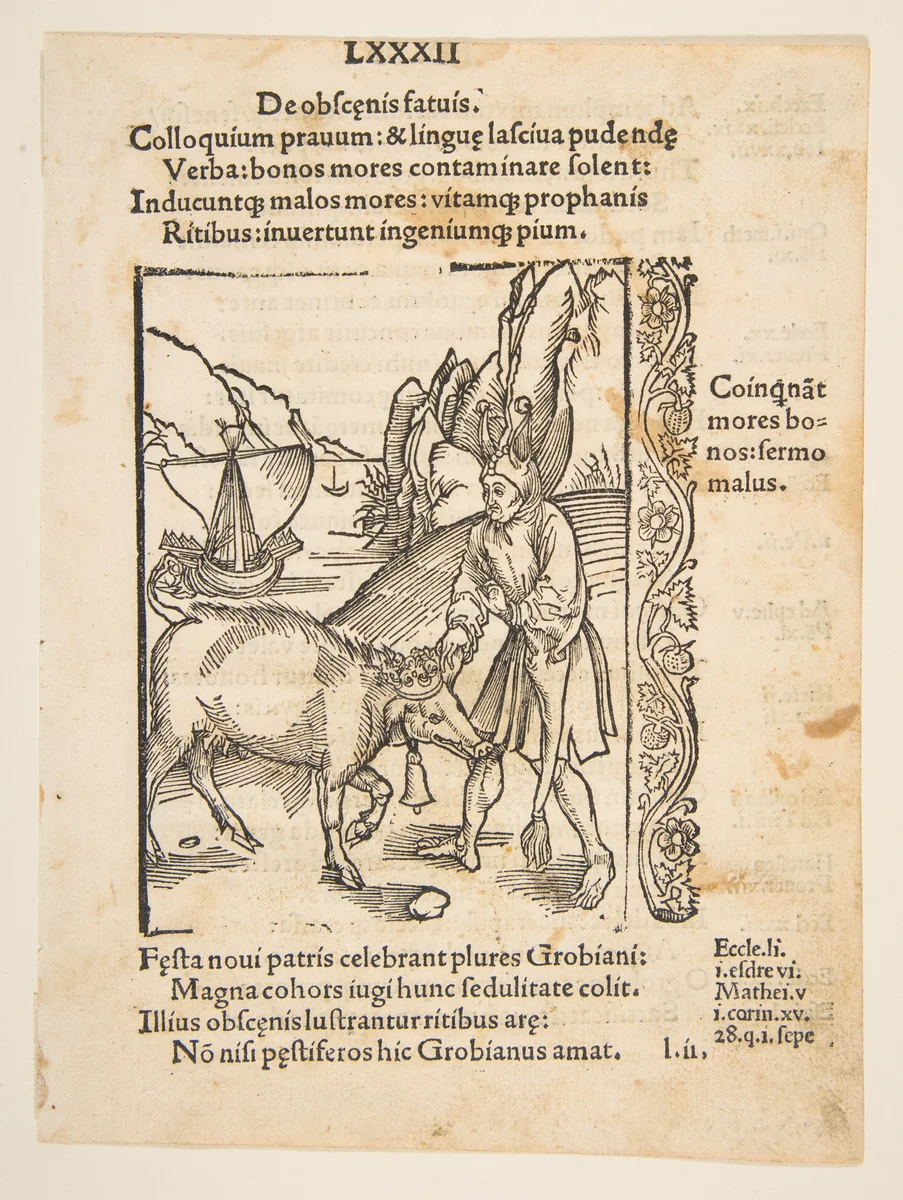 LXXXII
De obſcęnis fatuis.
Colloquium prauum: & linguę laſciua pudendę
Verba: bonos mores contaminare ſolent:
Inducuntqꝫ malos mores: vitamqꝫ prophanis
Ritibus: inuertunt ingeniumqꝫ pium.
Coinq̃nāt
mores bo=
nos: ſermo
malus.
Fęſta noui patris celebrant plures Grobiani:
Magna cohors iugi hunc ſedulitate colit.
Illius obſcęnis luſtrantur ritibus arę:
Nō niſi pęſtiferos hic Grobianus amat.
l.ii,
Eccle.li.
i.eſdre vi.
Mathei.v
i.corin.xv.
28.q.i.ſepe